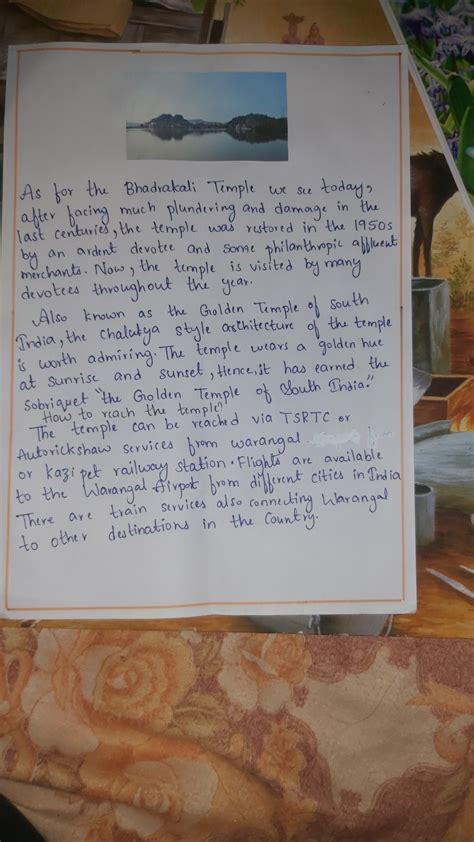 As for the Bhadrakali Temple we see today,
after facing much plundering and damage in the
last centuries, the temple was restored in the 1950s
by an ardent devotee and some philanthropic affluent
merchants. Now, the temple is visited by many
devotees throughout the year.
Also known as the Golden Temple of South
India, the Chalutya style architecture of the temple
is worth admiring. The temple wears a golden hue
at sunrise and sunset, Hence, it has earned the
sobriquet "the Golden Temple of South India."
How to reach the temple?
The temple can be reached via TSRTC or
Autorickshaw services from warangal
or kazi pet railway station. Flights are available
to the Warangal Airpot from different cities in India
There are train services also connecting Warangal
to other destinations in the Country.